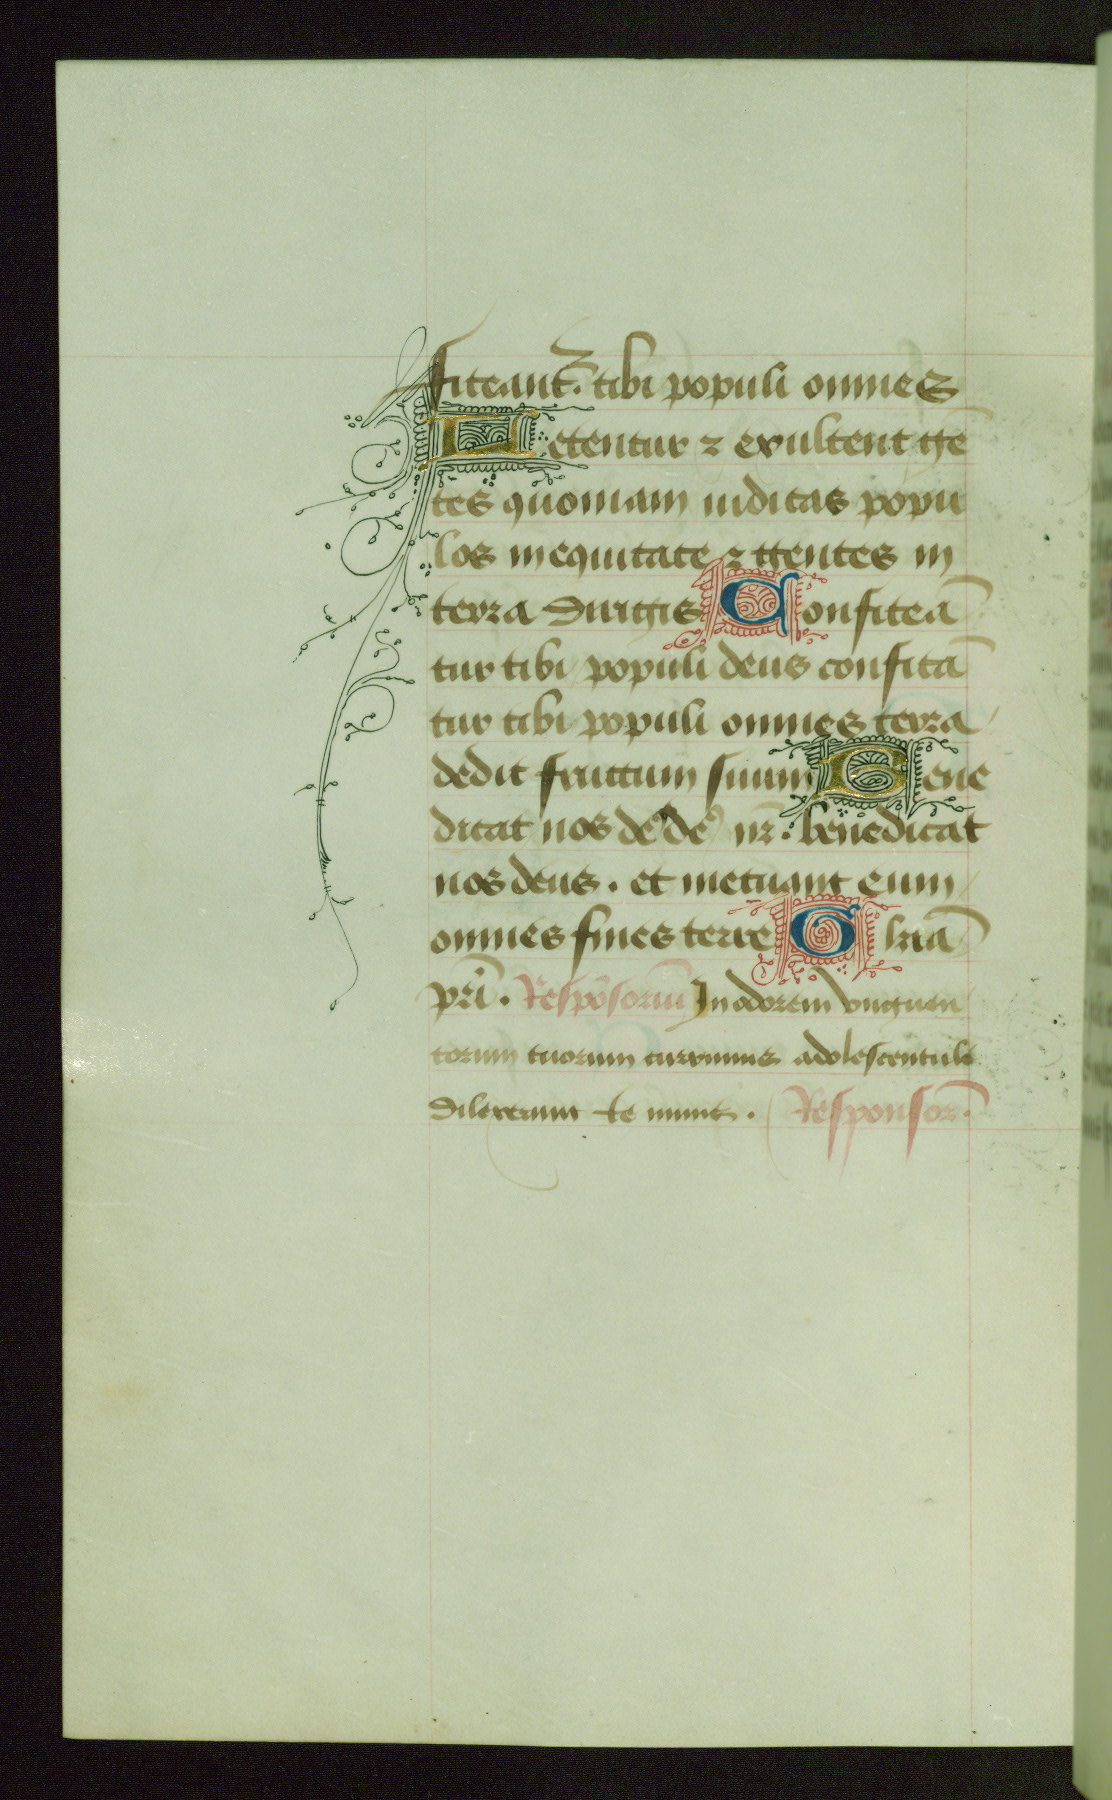 fiteant᷑. tibi populi omnes
Letentur ⁊ exultent gē
tes quoniam iudicas popu
los in equitate ⁊ gentes in
terra dirigis Confiteā
tur tibi populi deus confitā
tur tibi populi omnes terra
dedit fructum suum Bene
dicat nos de᷒ de᷒ nr̄. benedicat
nos deus. et metuant eum
omnes fines terre Glriā
pr̄i. Respōsoriū In odorem vnguen
torum tuorum currimus adolescentule
dilexerunt te nimis. Responsor̄.